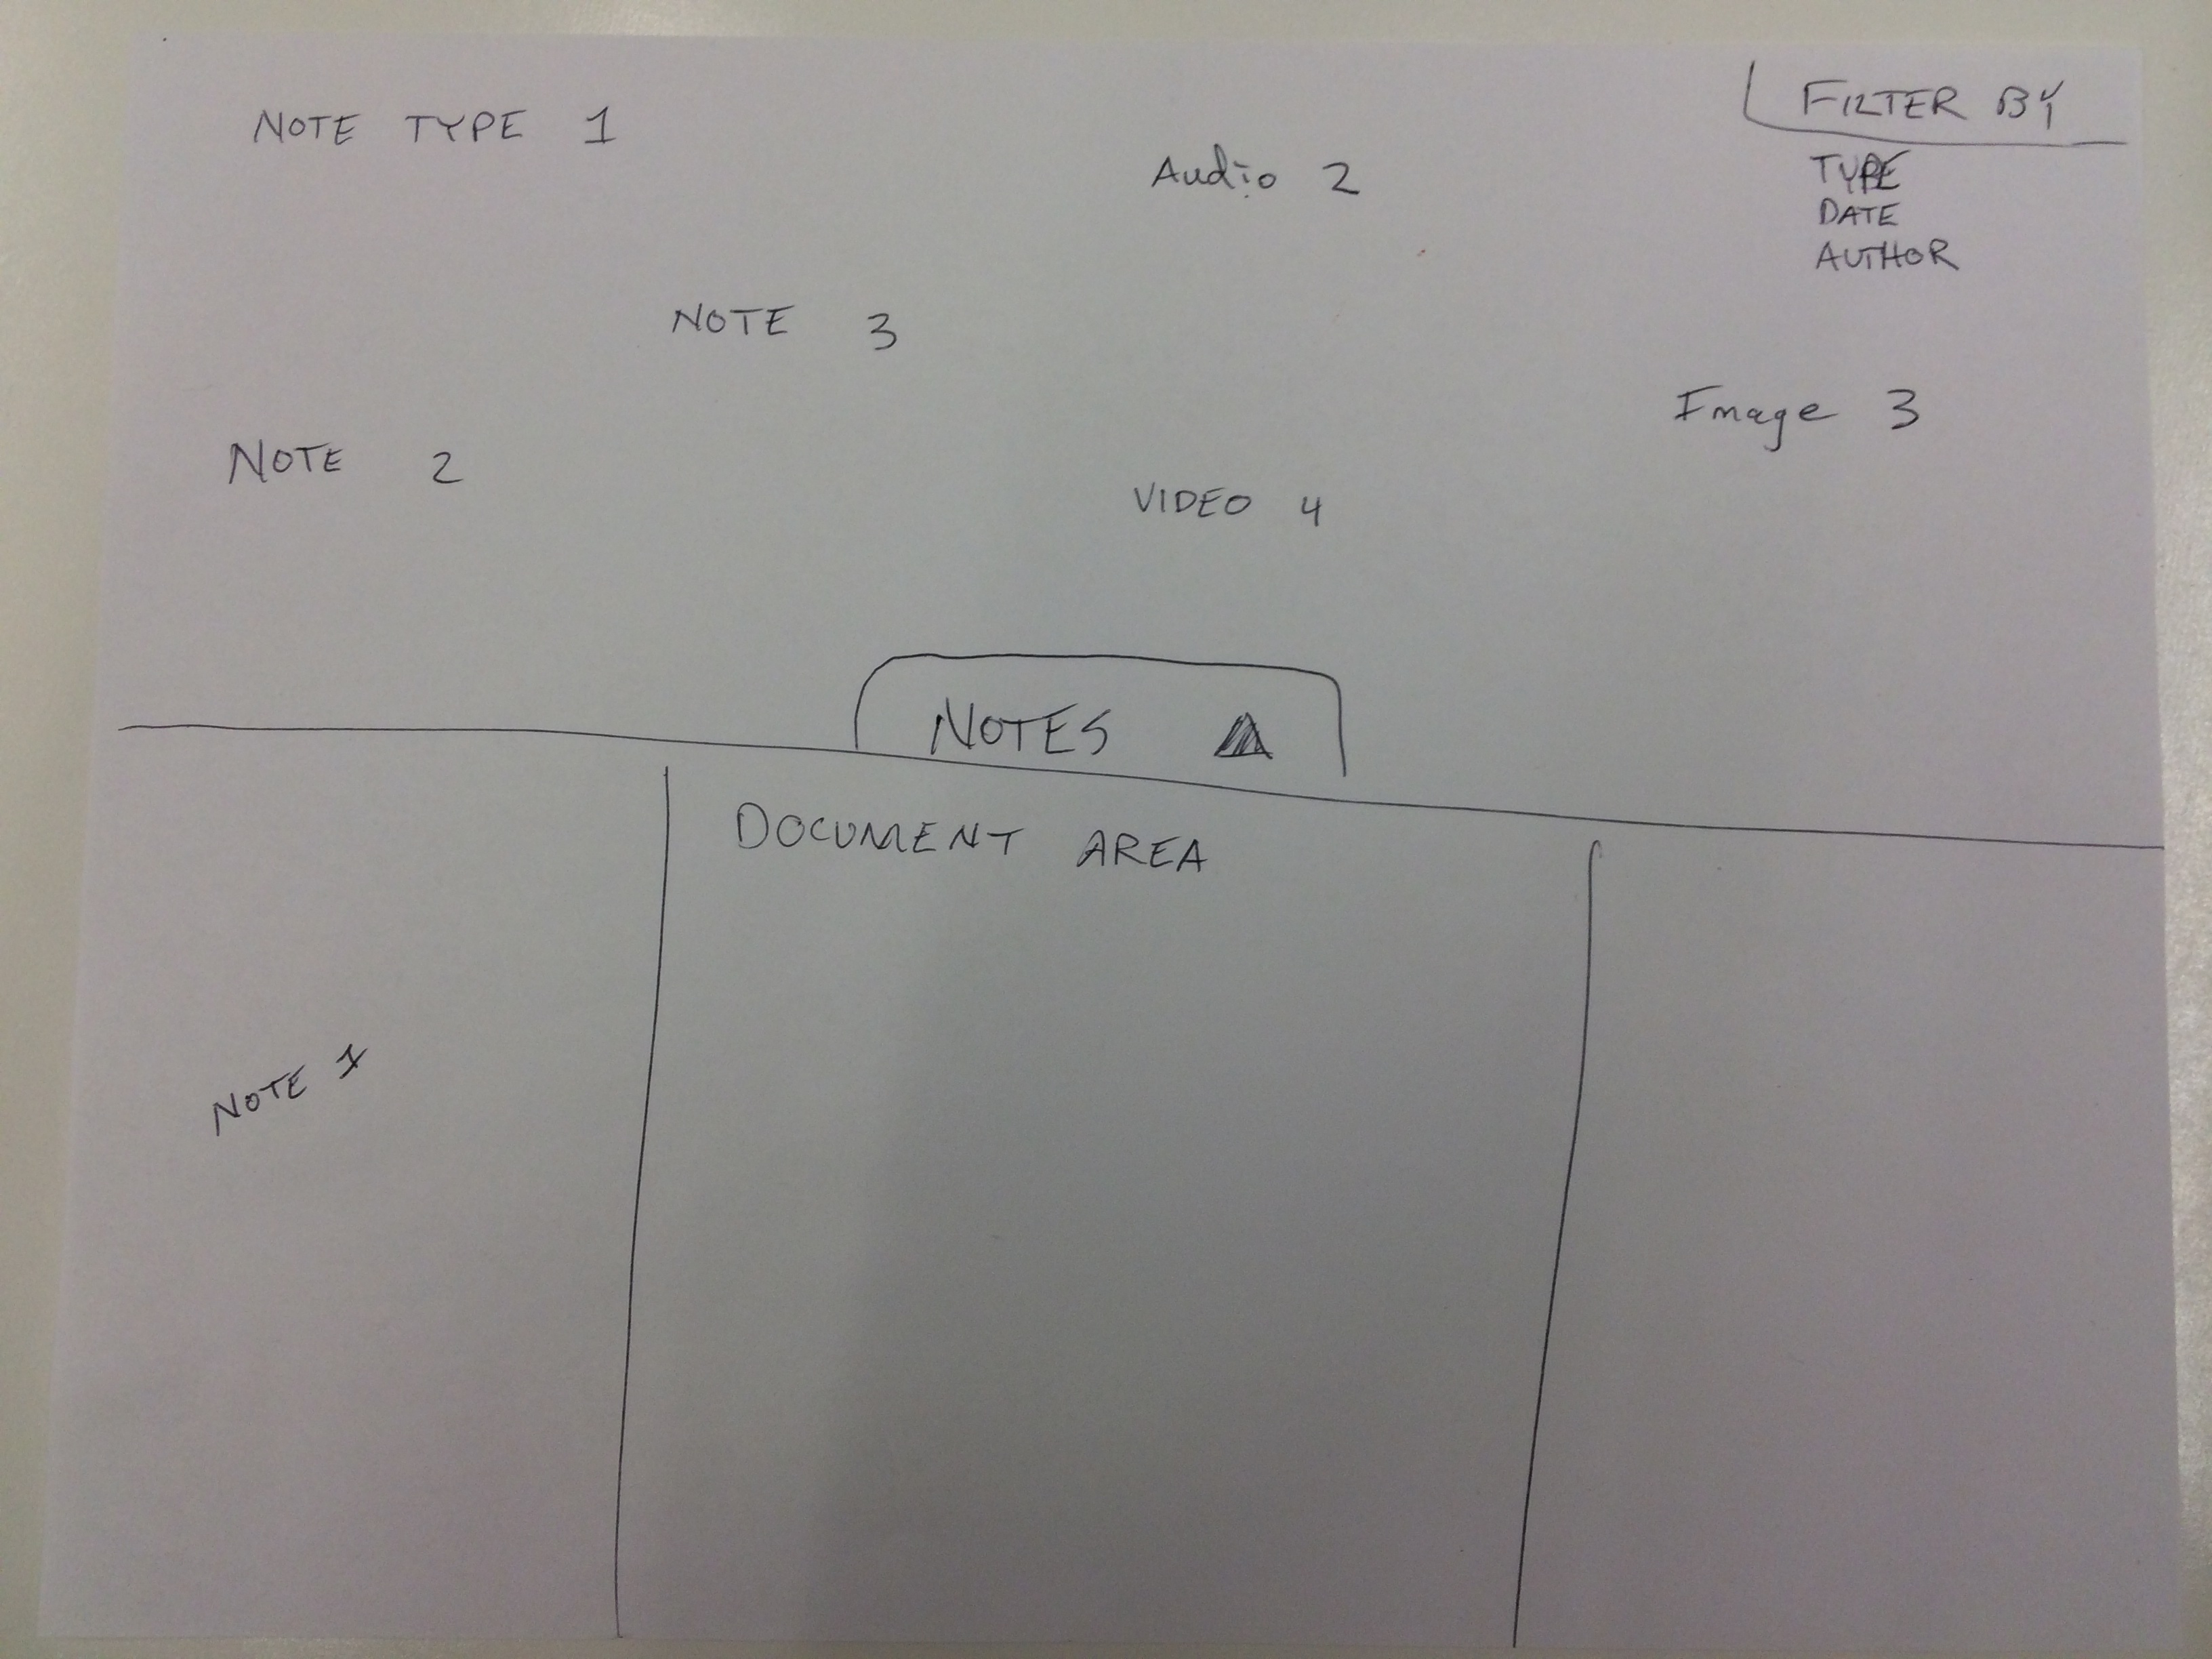 NOTE TYPE 1
Audio 2
FILTER BY
TYPE
DATE
AUTHOR
NOTE 3
Image 3
NOTE 2
VIDEO 4
NOTES
DOCUMENT AREA
NOTE 1